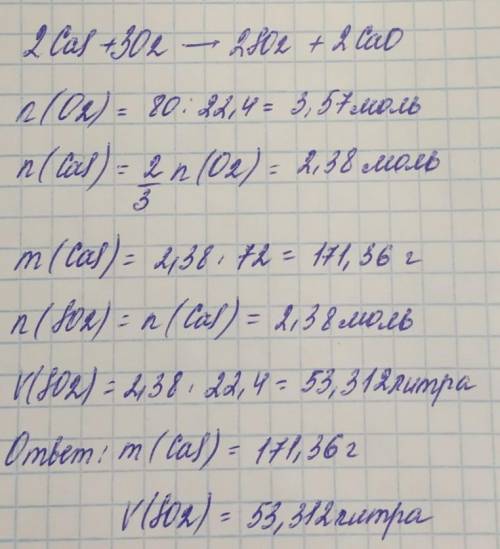 2CaS + 3O2 → 2SO2 + 2CaO
n(O2) = 80 : 22,4 = 3,57 моль
n(CaS) = 2/3 n(O2) = 2,38 моль
m(CaS) = 2,38 · 72 = 171,36 г
n(SO2) = n(CaS) = 2,38 моль
V(SO2) = 2,38 · 22,4 = 53,312 литра
Ответ: m(CaS) = 171,36 г
V(SO2) = 53,312 литра